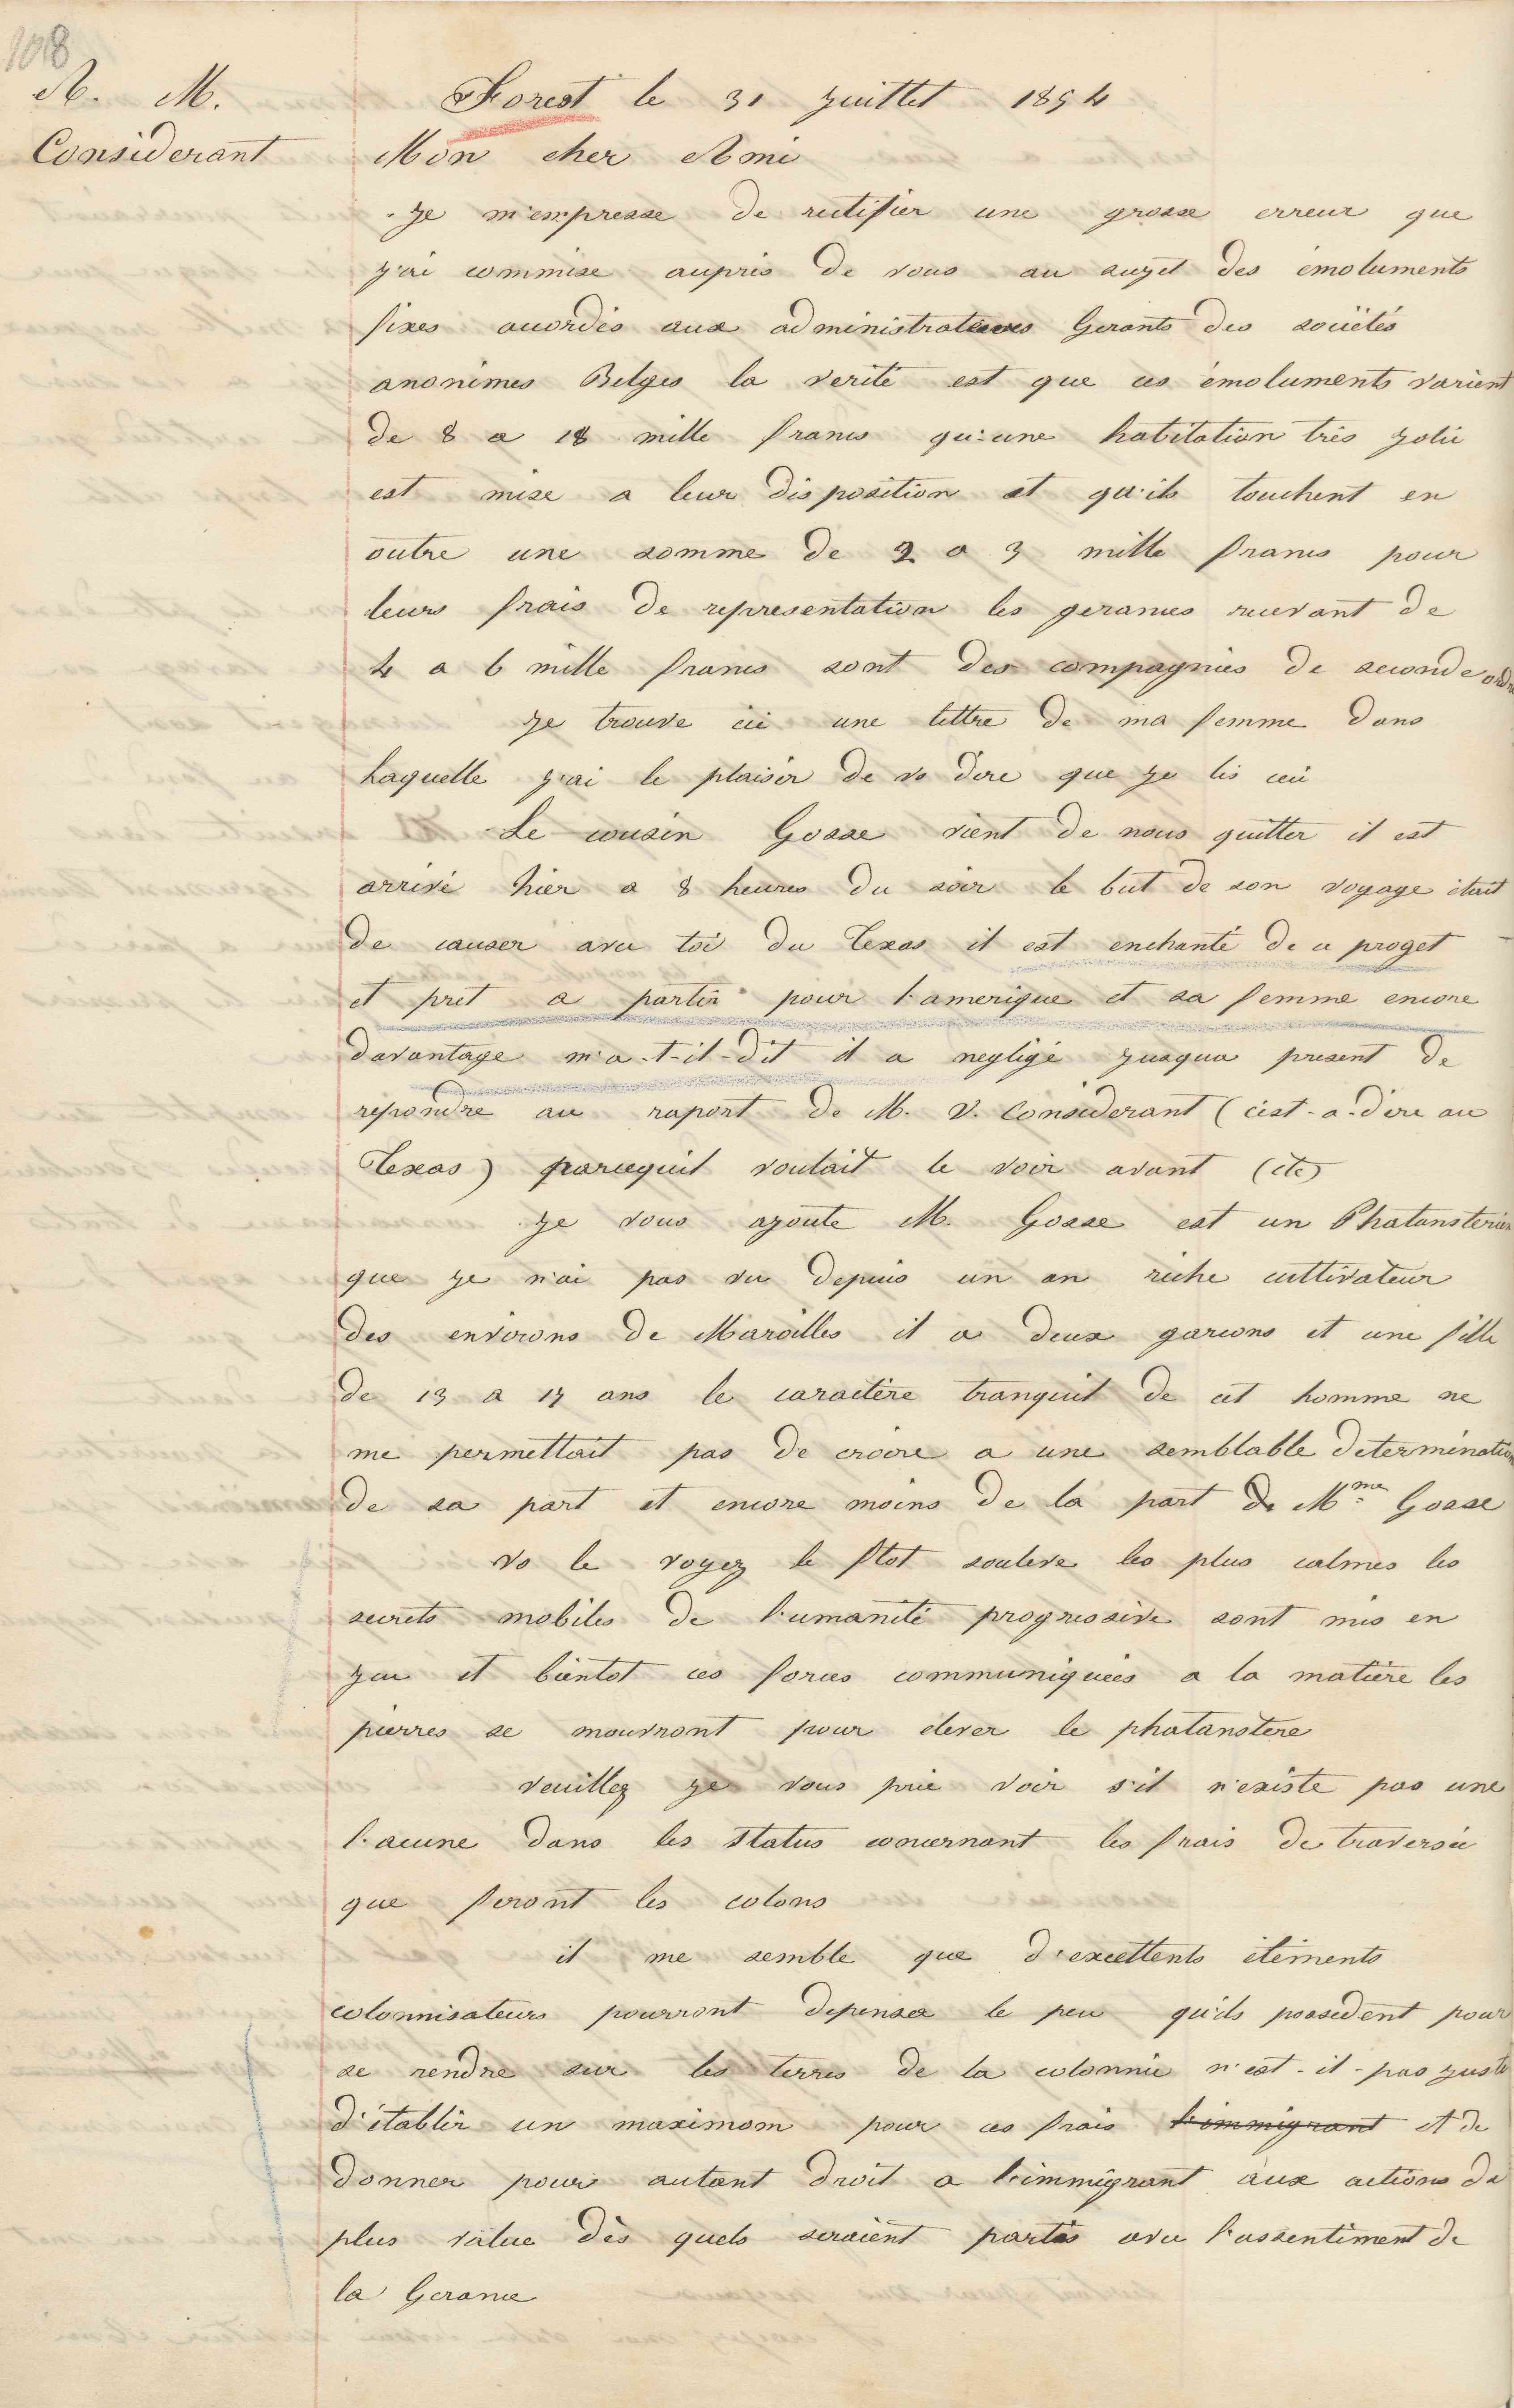 108
A. M.
Considerant
Forest le 31 juillet 1854
Mon cher Ami
je m'empresse de rectifier une grosse erreur que
j'ai commise auprès de vous au sujet des émoluments
fixes accordés aux administrateurs Gerants des sociétés
anonimes Belges la verité est que ces émoluments varient
de 8 a 18 mille francs qu'une habitation très jolie
est mise a leur disposition et qu'ils touchent en
outre une somme de 2 a 3 mille francs pour
leurs frais de representation les gerances recevant de
4 a 6 mille francs sont des compagnies de seconde ordre
je trouve ici une lettre de ma femme dans
laquelle j'ai le plaisir de vs dire que je lis ceci
Le cousin Gosse vient de nous quitter il est
arrivé hier a 8 heures du soir le but de son voyage était
de causer avec toi du Texas il est enchanté de ce projet
et pret a partir pour l'amerique et sa femme encore
davantage m'a-t-il-dit il a negligé jusqua present de
repondre au raport de M. V. Considerant (c'est-a-dire au
Texas) parcequil voulait le voir avant (etc)
je vous ajoute M. Gosse est un Phalansterien
que je n'ai pas vu depuis un an riche cultivateur
des environs de Maroilles il a deux garcons et une fille
de 13 a 17 ans le caractère tranquil de cet homme ne
me permettait pas de croire a une semblable determination
de sa part et encore moins de la part de Mme Gosse
vs le voyez le flot souleve les plus calmes les
secrets mobiles de l'umanité progressive sont mis en
jeu et bientot ces forces communiquées a la matière les
pierres se mouvront pour elever le phalanstere
veuillez je vous prie voir s'il n'existe pas une
l'acune dans les status concernant les frais de traversée
que feront les colons
il me semble que d'excellents éléments
colonnisateurs pourront depenser le peu qu'ils possedent pour
se rendre sur les terres de la colonnie n'est-il-pas juste
d'établir un maximom pour ces frais l'immigrant et de
donner pour autant droit a l'immigrant aux actions de
plus value dès quels seraient partis avec l'assentiment de
la Gerance